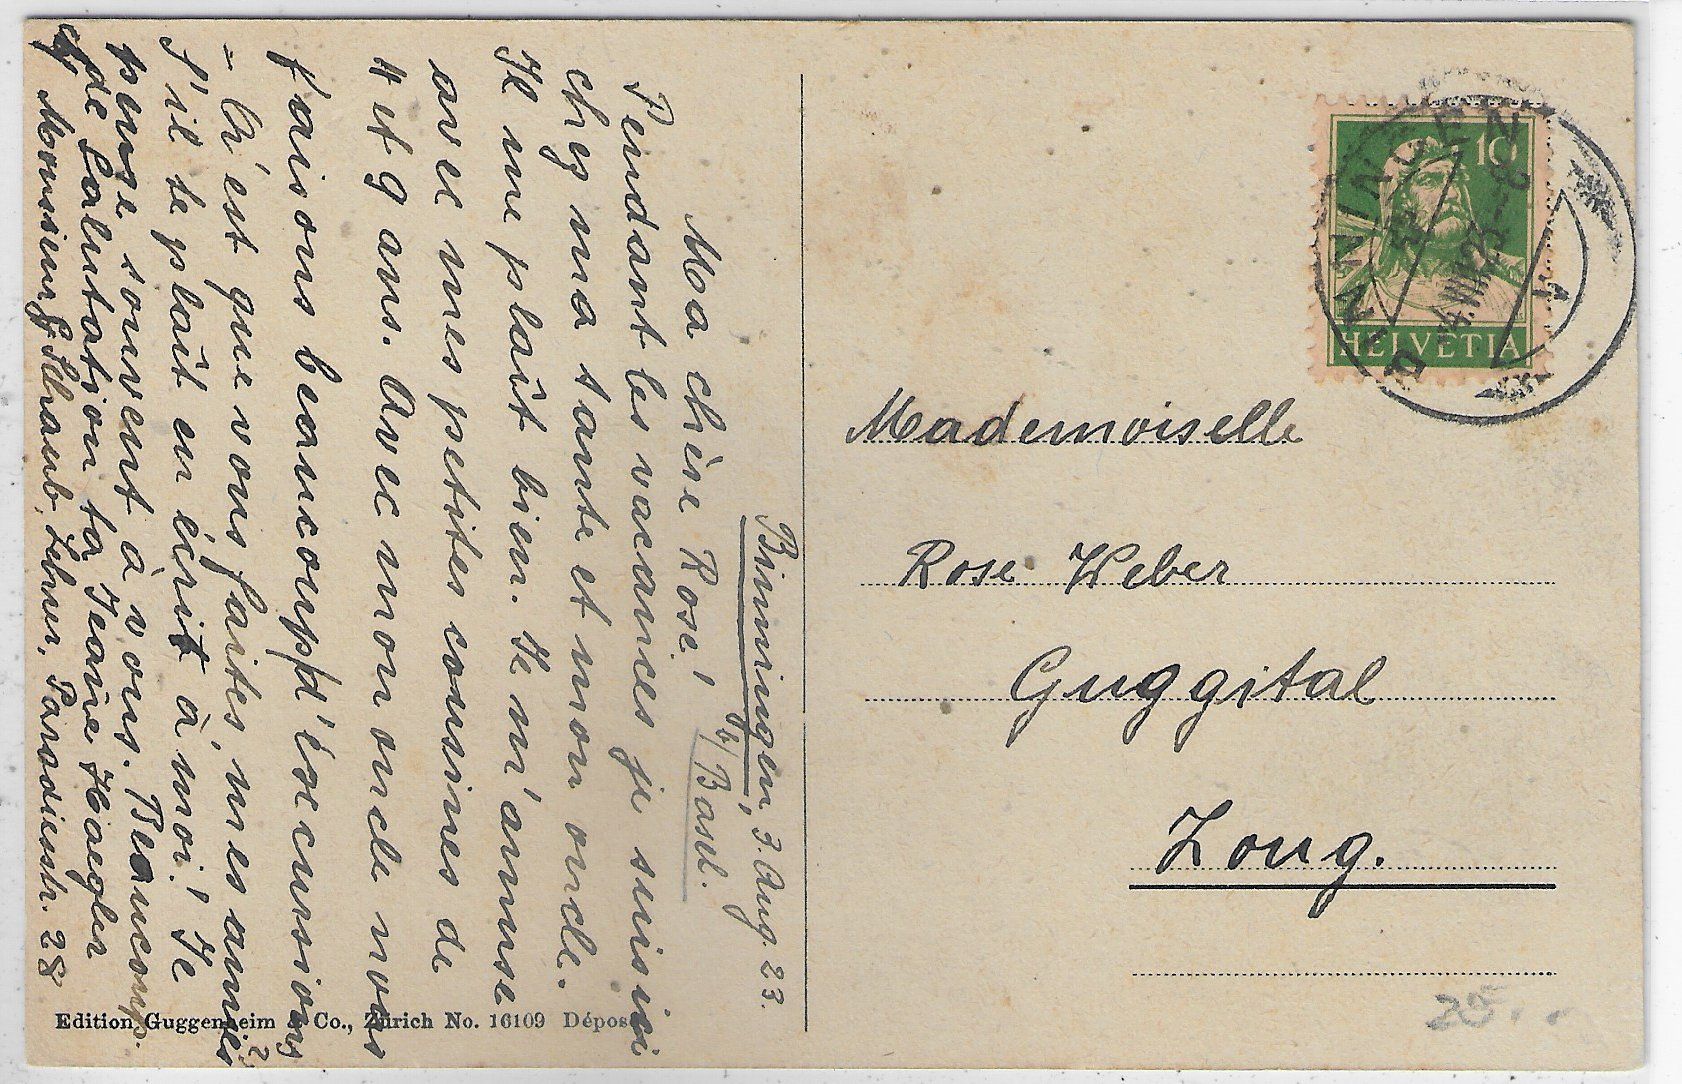 Binningen, 3. Aug. 23.
b/Basel.
Ma chère Rose!
Pendant les vacances je suis ici
chez ma tante et mon oncle.
Je me plaît bien. Je m'amuse
avec mes petites cousines de
4 et 9 ans. Avec mon oncle nous
faisons beaucoup d'excursions
- Qu'est que vous faites, mes amies?
S'il te plaît en écrit à moi! Je
pense souvent à vous. Beaucoup
de Salutation ta Jeanne Haegler
Monsieur Schaub, Lehrer, Paradiesstr. 28
Edition Guggenheim & Co., Zürich No. 16109 Déposé
10
HELVETIA
BINNINGEN
4.VIII.23-8
Mademoiselle
Rose Weber
Guggital
Zoug.
25.--